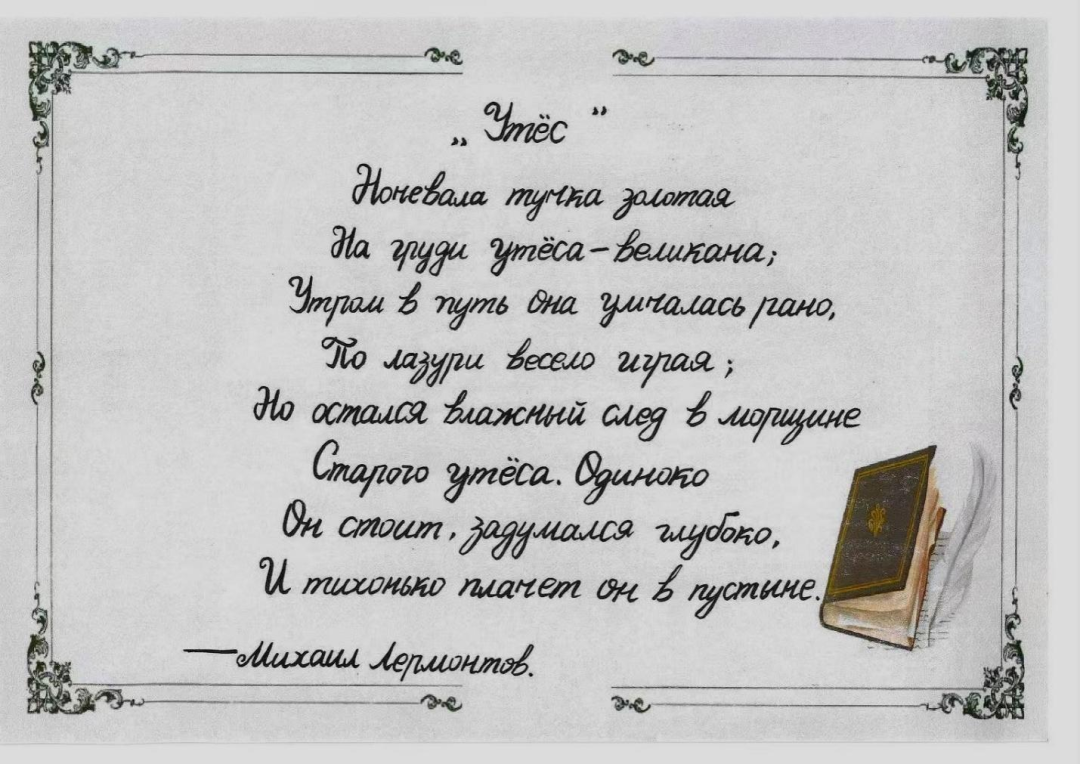 „Утёс“
Ночевала тучка золотая
На груди утёса-великана;
Утром в путь она умчалась рано,
По лазури весело играя;
Но остался влажный след в морщине
Старого утёса. Одиноко
Он стоит, задумался глубоко,
И тихонько плачет он в пустыне.
—Михаил Лермонтов.